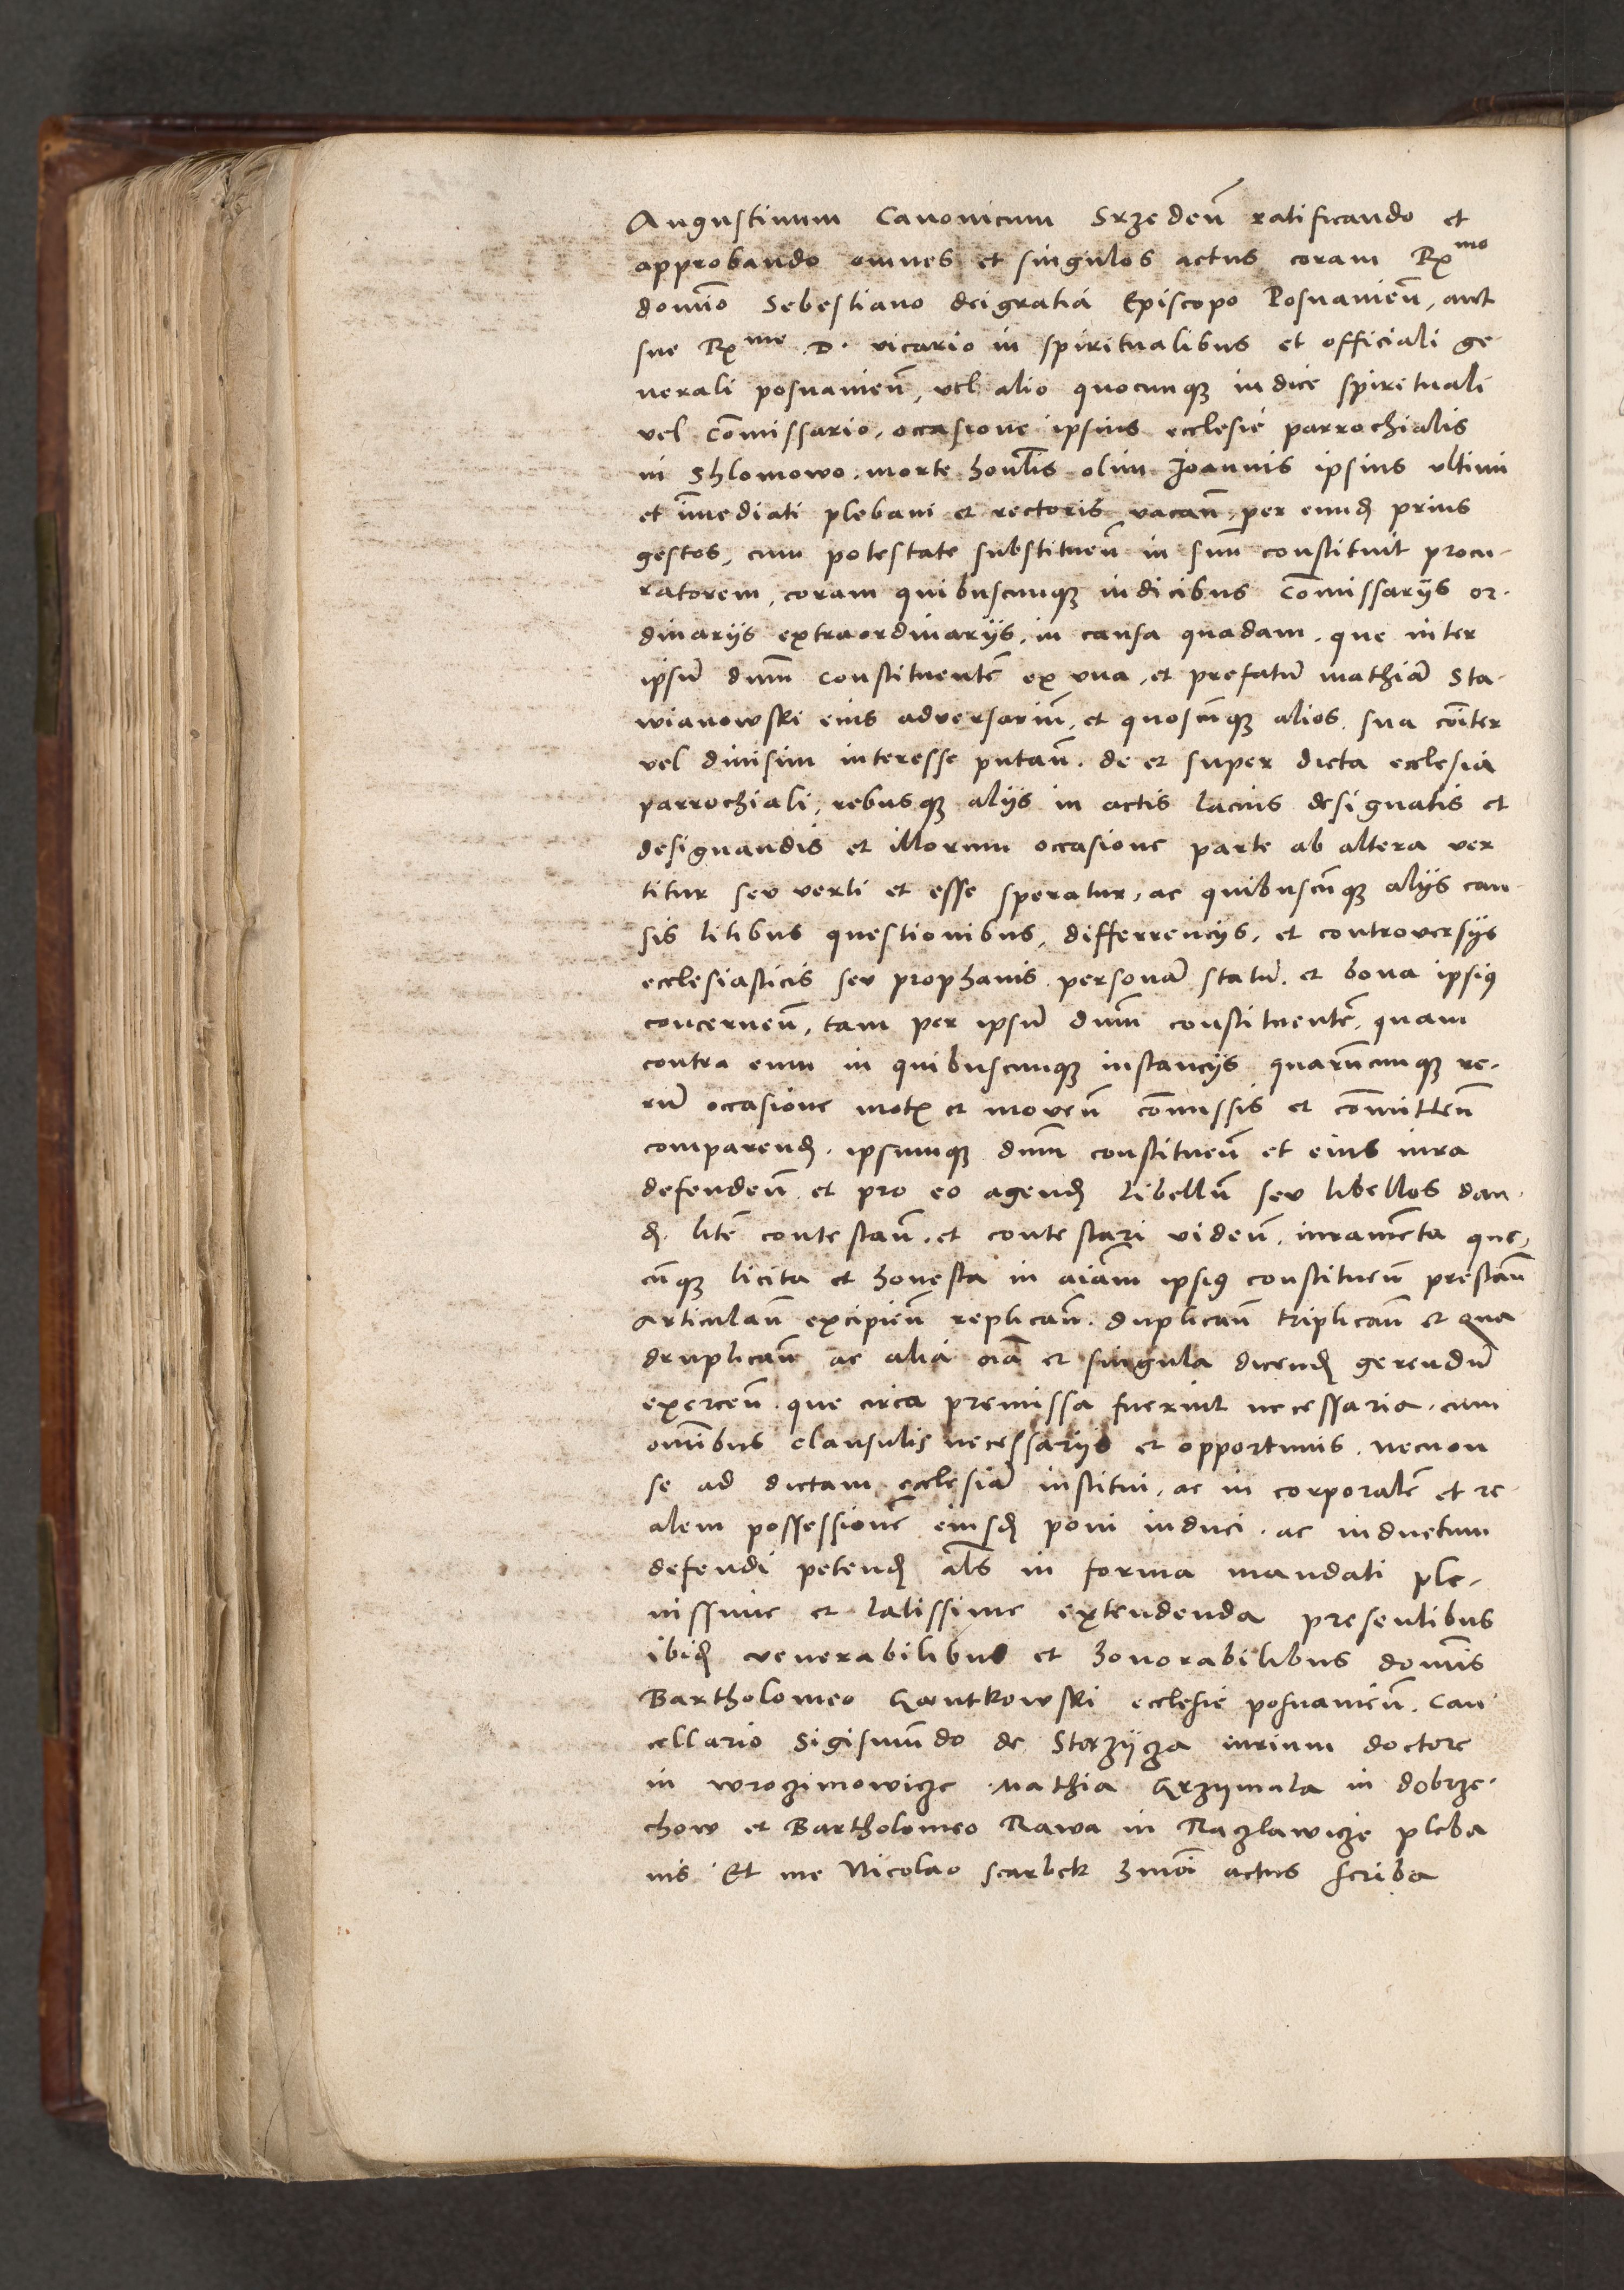 Augustinum Canonicum Srzedeñ ratificando et
approbando omnes et singulos actus coram Rx^mo
domĩo Sebestiano dei gratia Episcopo Posnanieñ, aut
sue Rx^me .D. vicario in spiritualibus et officiali ge-
nerali posnanieñ, vel alio quocunqꝫ iudice spirituali
vel Cõmissario, occasione ipsius ecclesie parrochialis
in Shlomowo, morte honãlis olim Joannis ipsius ultimi
et ĩmediati plebani et rectoris vacañ, per eundꝫ prius
gestos, cum potestate substitueñ in suũ constituit procu-
ratorem, coram quibuscunqꝫ iudicibus Cõmissarijs or-
dinarijs extraordinarijs, in causa quadam, que inter
ipsũ dnũm constituentẽ ex una, et prefatũ mathiã Sta-
wianowski eius adversariũ, et quoscũqꝫ alios, sua cõiter
vel divisim interesse putañ, de et super dicta ecclesia
parrochiali, rebusqꝫ alijs in actis lacius designatis et
designandis et illorum occasione parte ab altera ver
titur seu verti et esse speratur, ac quibuscũqꝫ alijs cau-
sis litibus questionibus, differrencijs, et controversijs
ecclesiasticis seu prophanis personã statũ, et bona ipsiꝰ
concerneñ, tam per ipsũ dnũm constituentẽ, quam
contra eum in quibuscunqꝫ instancijs quarũcunqꝫ re-
rũ occasione motꝭ et moveñ cõmissis et cõmitteñ
comparendꝫ, ipsumqꝫ dnũm constitueñ et eius iura
defendeñ, et pro eo agendꝫ libellũ seu libellos dan-
dꝫ, litẽ contestañ, et contestari videñ, iuramẽta que-
cũqꝫ licita et honesta in aiãm ipsiꝰ constitueñ prestañ
articulañ excipieñ replicañ, duplicañ triplicañ et qua
druplicañ ac alia oĩa et singula dicendꝫ gerendũ
exerceñ, que circa premissa fuerint necessaria, cum
omĩbus clausulis necessarijs et opportunis, necnon
se ad dictam ecclesiã institui, ac in corporalẽ et re-
alem possessionẽ eiusdꝫ poni induci, ac inductum
defendi petendꝫ als̃ in forma mandati ple-
nissime et latissime extendenda presentibus
ibidꝫ venerabilibus et honorabilibus domĩs
Bartholomeo Gantkowski ecclesie posnanieñ, Can
cellario Sigismũdo de Starzijcza iurium doctore
in wrozimowicze, Mathia Grzymala in dobrze-
chow et Bartholomeo Rawa in Raczlawicze pleba
nis Et me Nicolao scarbek hmõi actus scriba